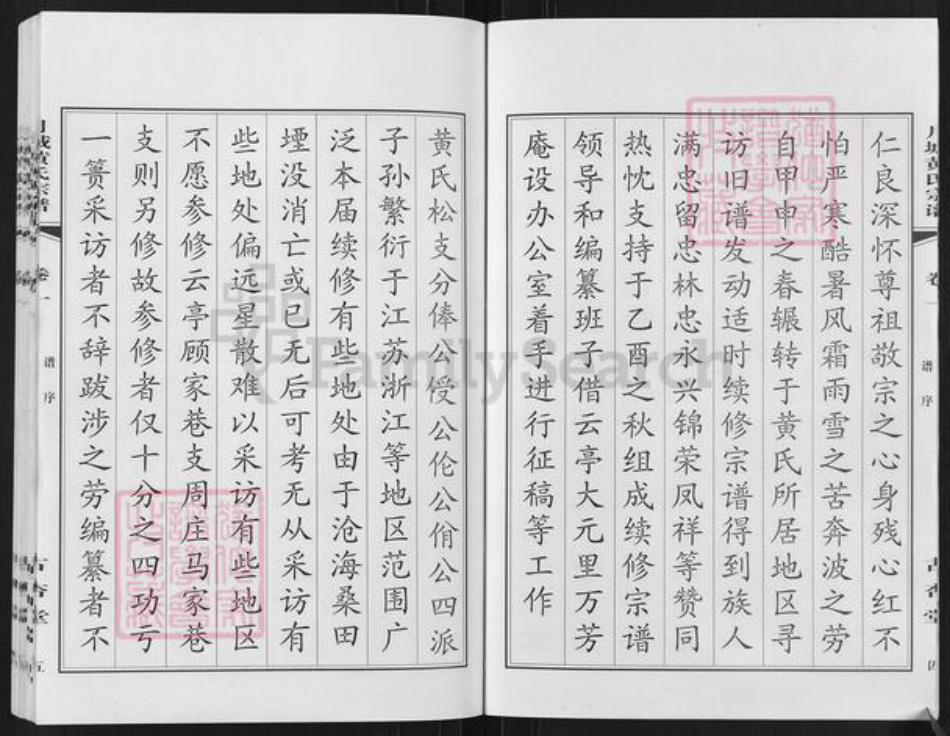 仁良深怀尊祖敬宗之心身残心红不
怕严寒酷暑风霜雨雪之苦奔波之劳
自甲申之春辗转于黄氏所居地区寻
访旧谱发动适时续修宗谱得到族人
满忠留忠林忠永兴锦荣凤祥等赞同
热忱支持于乙酉之秋组成续修宗谱
领导和编纂班子借云亭大元里万芳
庵设办公室着手进行征稿等工作
卷一
谱序
古杏堂
五
黄氏松支分俸公受公伦公佾公四派
子孙繁衍于江苏浙江等地区范围广
泛本届续修有些地处由于沧海桑田
堙没消亡或已无后可考无从采访有
些地处偏远星散难以采访有些地区
不愿参修云亭顾家巷支周庄马家巷
支则另修故参修者仅十分之四功亏
一篑采访者不辞跋涉之劳编纂者不
FamilySearch